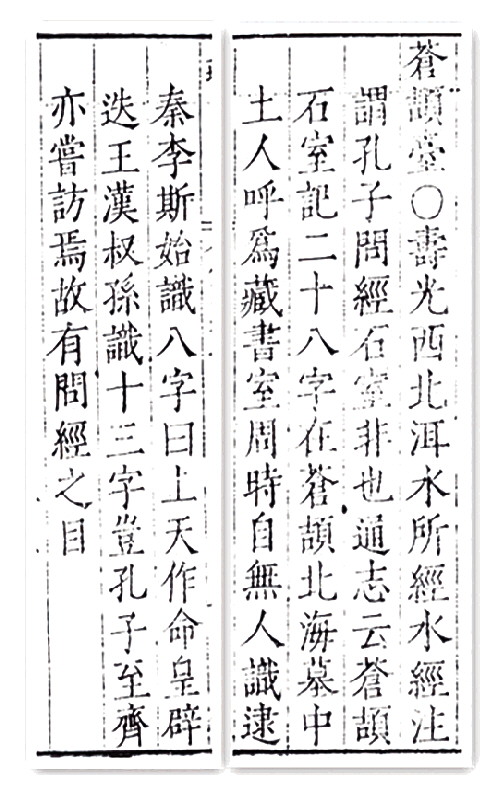 蒼頡臺○壽光西北洱水所經水經注
謂孔子問經石室非也通志云蒼頡
石室記二十八字在蒼頡北海墓中
土人呼爲藏書室周時自無人識逮
秦李斯始識八字曰上天作命皇辟
迭王漢叔孫識十三字豈孔子至齊
亦嘗訪焉故有問經之目